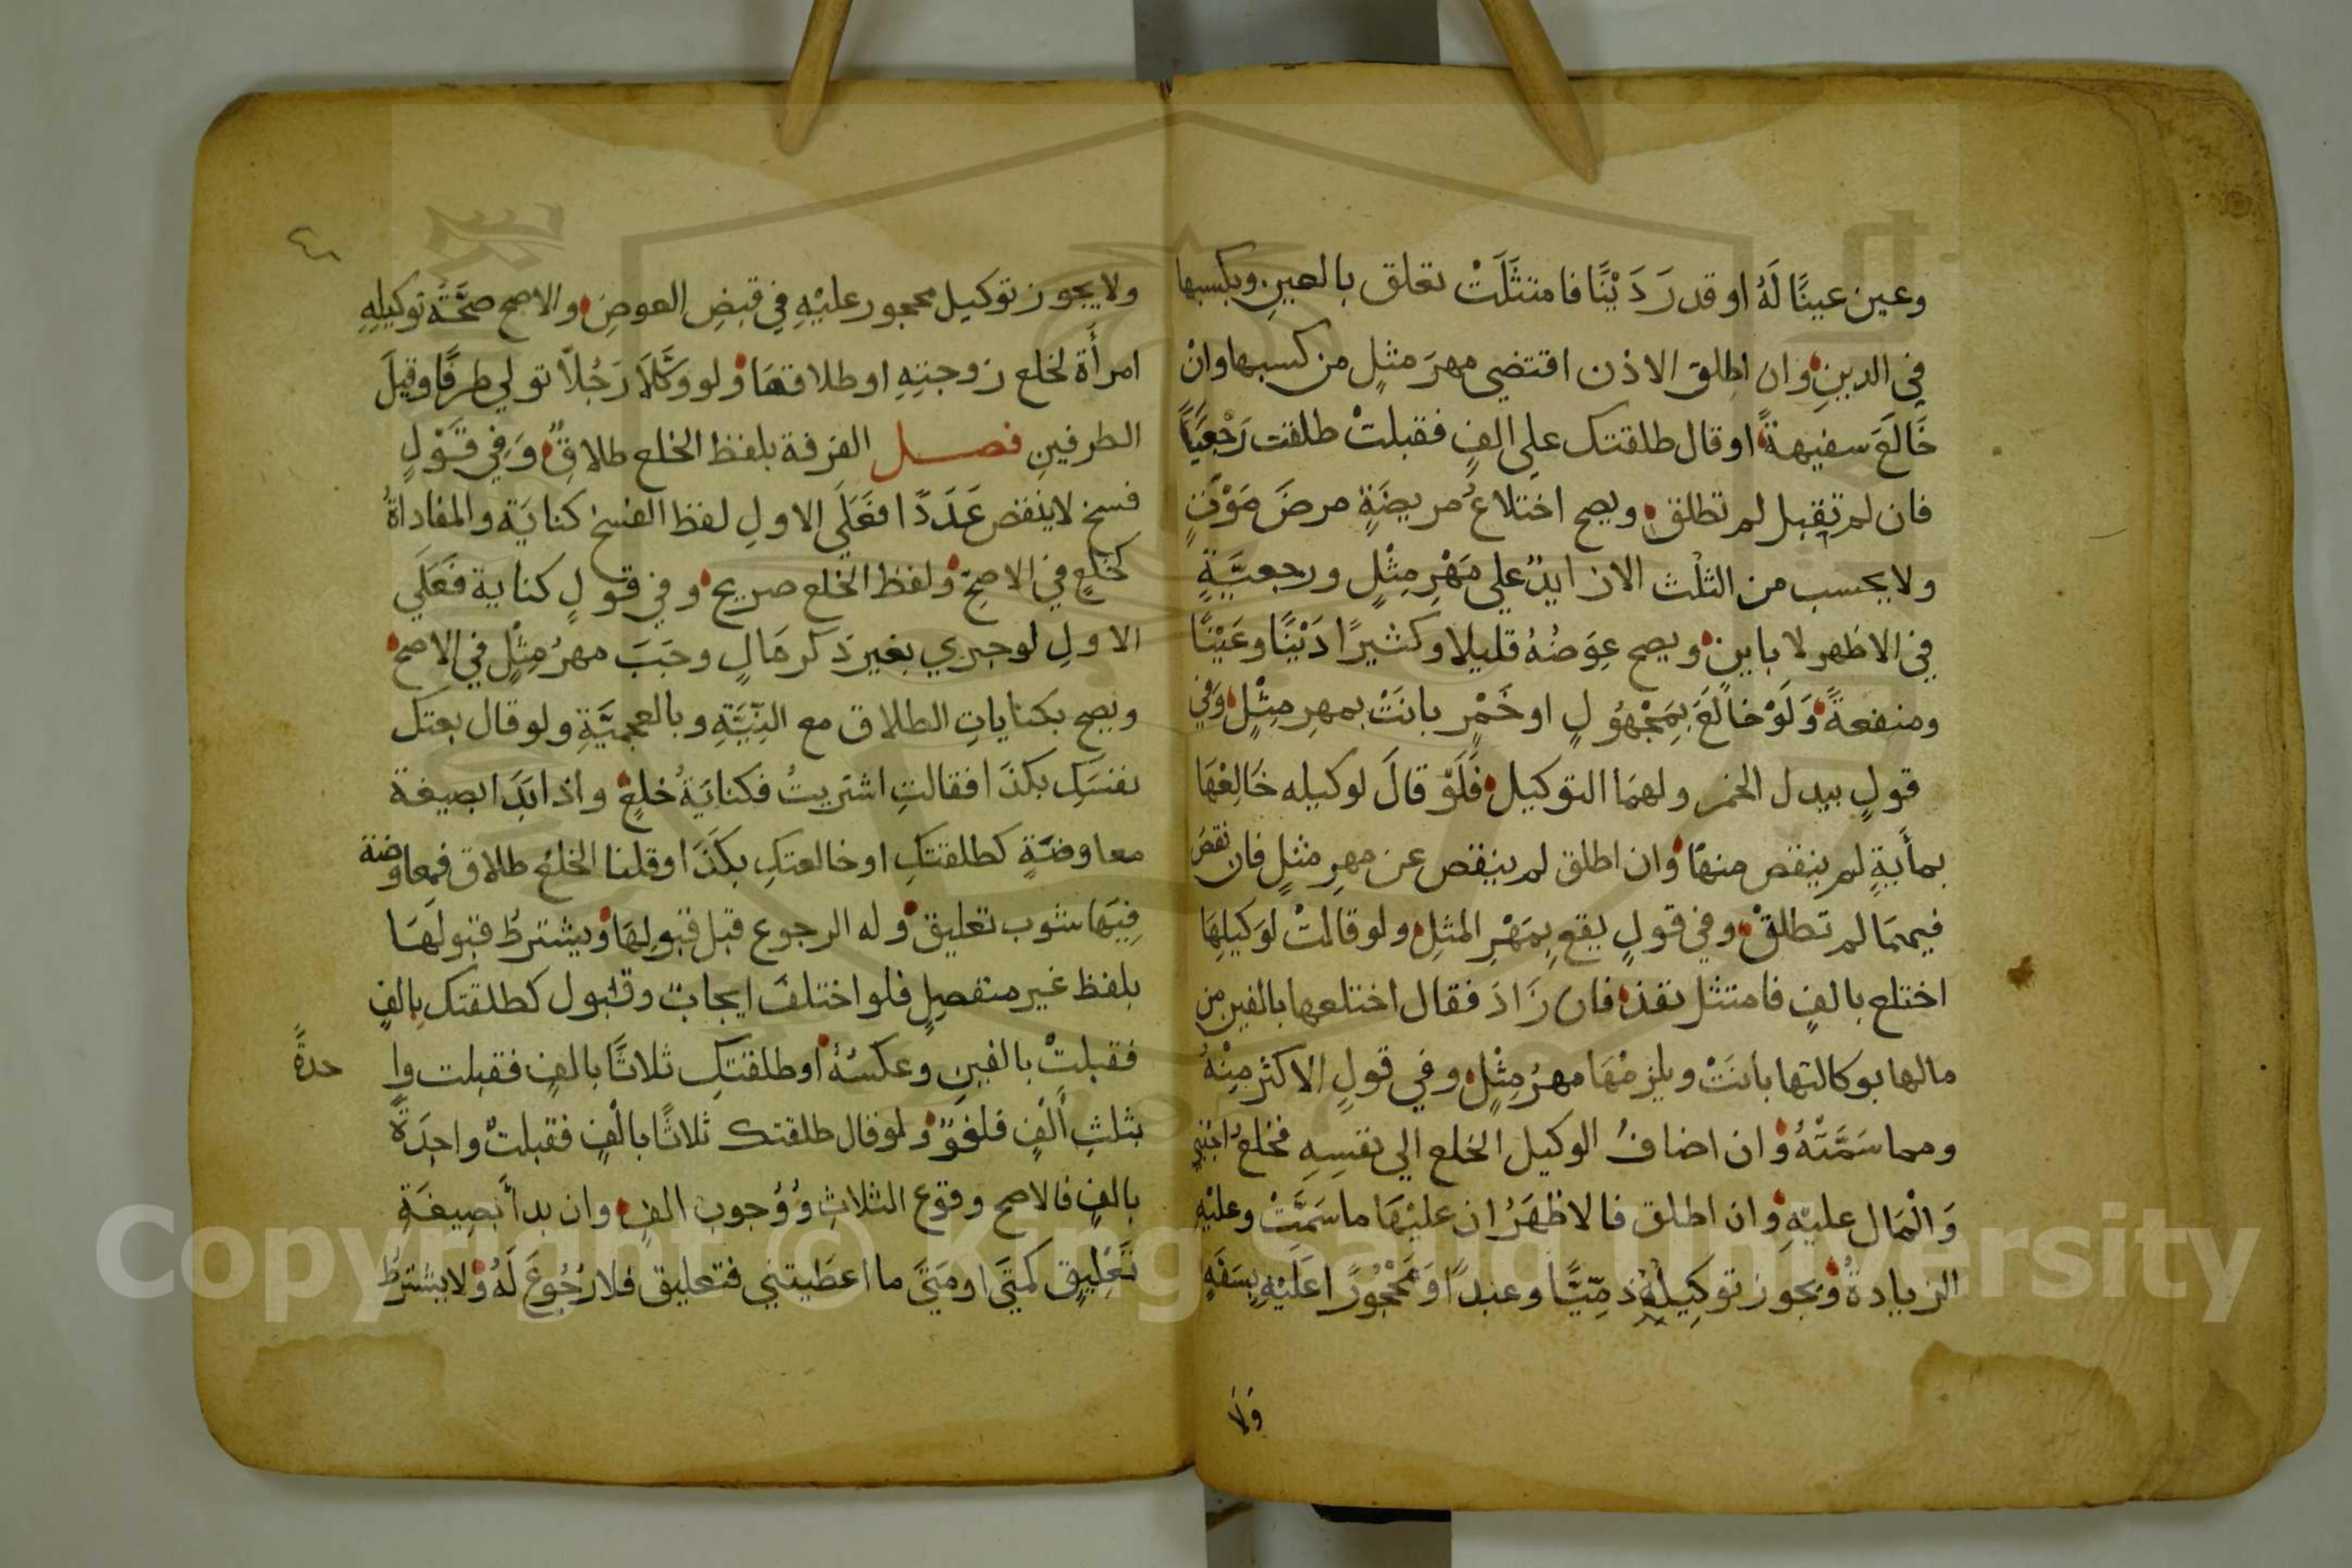 وعين عينًا لَهُ او قدر دَيْنًا فامتثَلَتْ تعلق بالعينِ وبكسبها
في الدينِ وان اطلق الاذن اقتضي مهرَ مثلٍ من كسبها وانْ
خَالَعَ سفيهةً او قال طلقتك علي الفٍ فقبلتْ طلقت رَجْعِيًّا
فان لم تقبل لم تطلق ويصح اختلاعُ مريضَةٍ مرضَ مَوْتٍ
ولا يحسب من الثلث الا زايدٌ علي مَهْرِ مِثْلٍ ورجعيَّةٍ
في الاظهر لا باينٍ ويصح عِوَضُهُ قليلا وكثيرًا دَيْنًا وعَيْنًا
ومنفعةً وَلَوْ خالَعَ بِمَجْهُولٍ او خَمْرٍ بانَتْ بمهرِ مِثْلٍ وَفي
قولٍ ببدل الخمر ولهمَا التوكيل فَلَوْ قالَ لوكيله خَالِعْهَا
بمأيةٍ لم ينقص منهَا وان اطلق لم ينقص عن مهرِ مثلٍ فان نقصَ
فيهمَا لم تطلقْ وفي قولٍ يقع بِمَهْرِ المثلِ ولو قالتْ لوَكيلِهَا
اختلع بالفٍ فامتثل نفذ فان زَادَ فقال اختلعها بالفين من
مالها بوكالتها بانَتْ ويلزمْهَا مهرُ مِثْلٍ وفي قولٍ الاكثر مِنْهُ
ومما سَمَّتْهُ وان اضافُ الوكيل الخلع الي نفسِهِ فخلعُ اجنبيٍ
وَالْمَال عليهِ وان اطلق فالاظهَرُ ان عليْهَا ما سَمَّتْ وعليْهِ
الزيادةُ ويَجوز توكِيلُهُ ذمِّيًّا وعبدًا وَمَحْجُورًا عَلَيْهِ بِسَفَهٍ
وَلَا
ولا يجوز توكيل محجور عليْهِ في قبضِ العوضِ والاصح صحَّةُ توكيلِهِ
امرأَة لخلع زوجتِهِ او طلاقهَا ولو وَكَّلَا رَجُلاً تولي طرفًا وقيلَ
الطرفينِ فصل الفرقة بلفظ الخلع طلاقٌ وَفي قَوْلٍ
فسخ لا ينقص عَدَدًا فَعَلَي الاولِ لفظ الفسخ كنايَة والمفاداةُ
كخلعٍ في الاصحِّ ولفظ الخلع صريح وفي قولٍ كناية فَعَلَي
الاولِ لو جري بغير ذكر مَالٍ وجَبَ مهرُ مِثْلٍ في الاصح
ويصح بكناياتِ الطلاق مع النِّيَّةِ وبالعجميَّةِ ولو قال بعتك
نفسَكِ بكذَا فقالتِ اشتريتُ فكنايَةُ خلعٍ واذا بَدَا بصيغة
معاوضَةٍ كطلقتكِ او خالعتكِ بكذَا وقلنا الخلعُ طلاق فمعاوضة
فِيهَا شوب تعليق وله الرجوع قبل قبولِهَا ويشترطُ قبولَهَا
بلفظ غير منفصلٍ فلو اختلفَ ايجابٌ وقبول كطلقتك بالفٍ
فقبلتْ بالفينِ وعكسُهُ او طلقتكِ ثلاثًا بالفٍ فقبلت وا
حدةً
بثلثِ أَلْفٍ فلغوٌ ولو قال طلقتك ثلاثًا بالْفٍ فقبلتْ واحِدَةً
بالفٍ فالاصح وقوع الثلاثِ وَوُجوبُ الفٍ وان بدأَ بصِيغَةِ
تَعْلِيقٍ كمتَي او مَتَي ما اعطَيتني فتعليق فلا رُجُوعَ لَهُ ولا يشترطُ